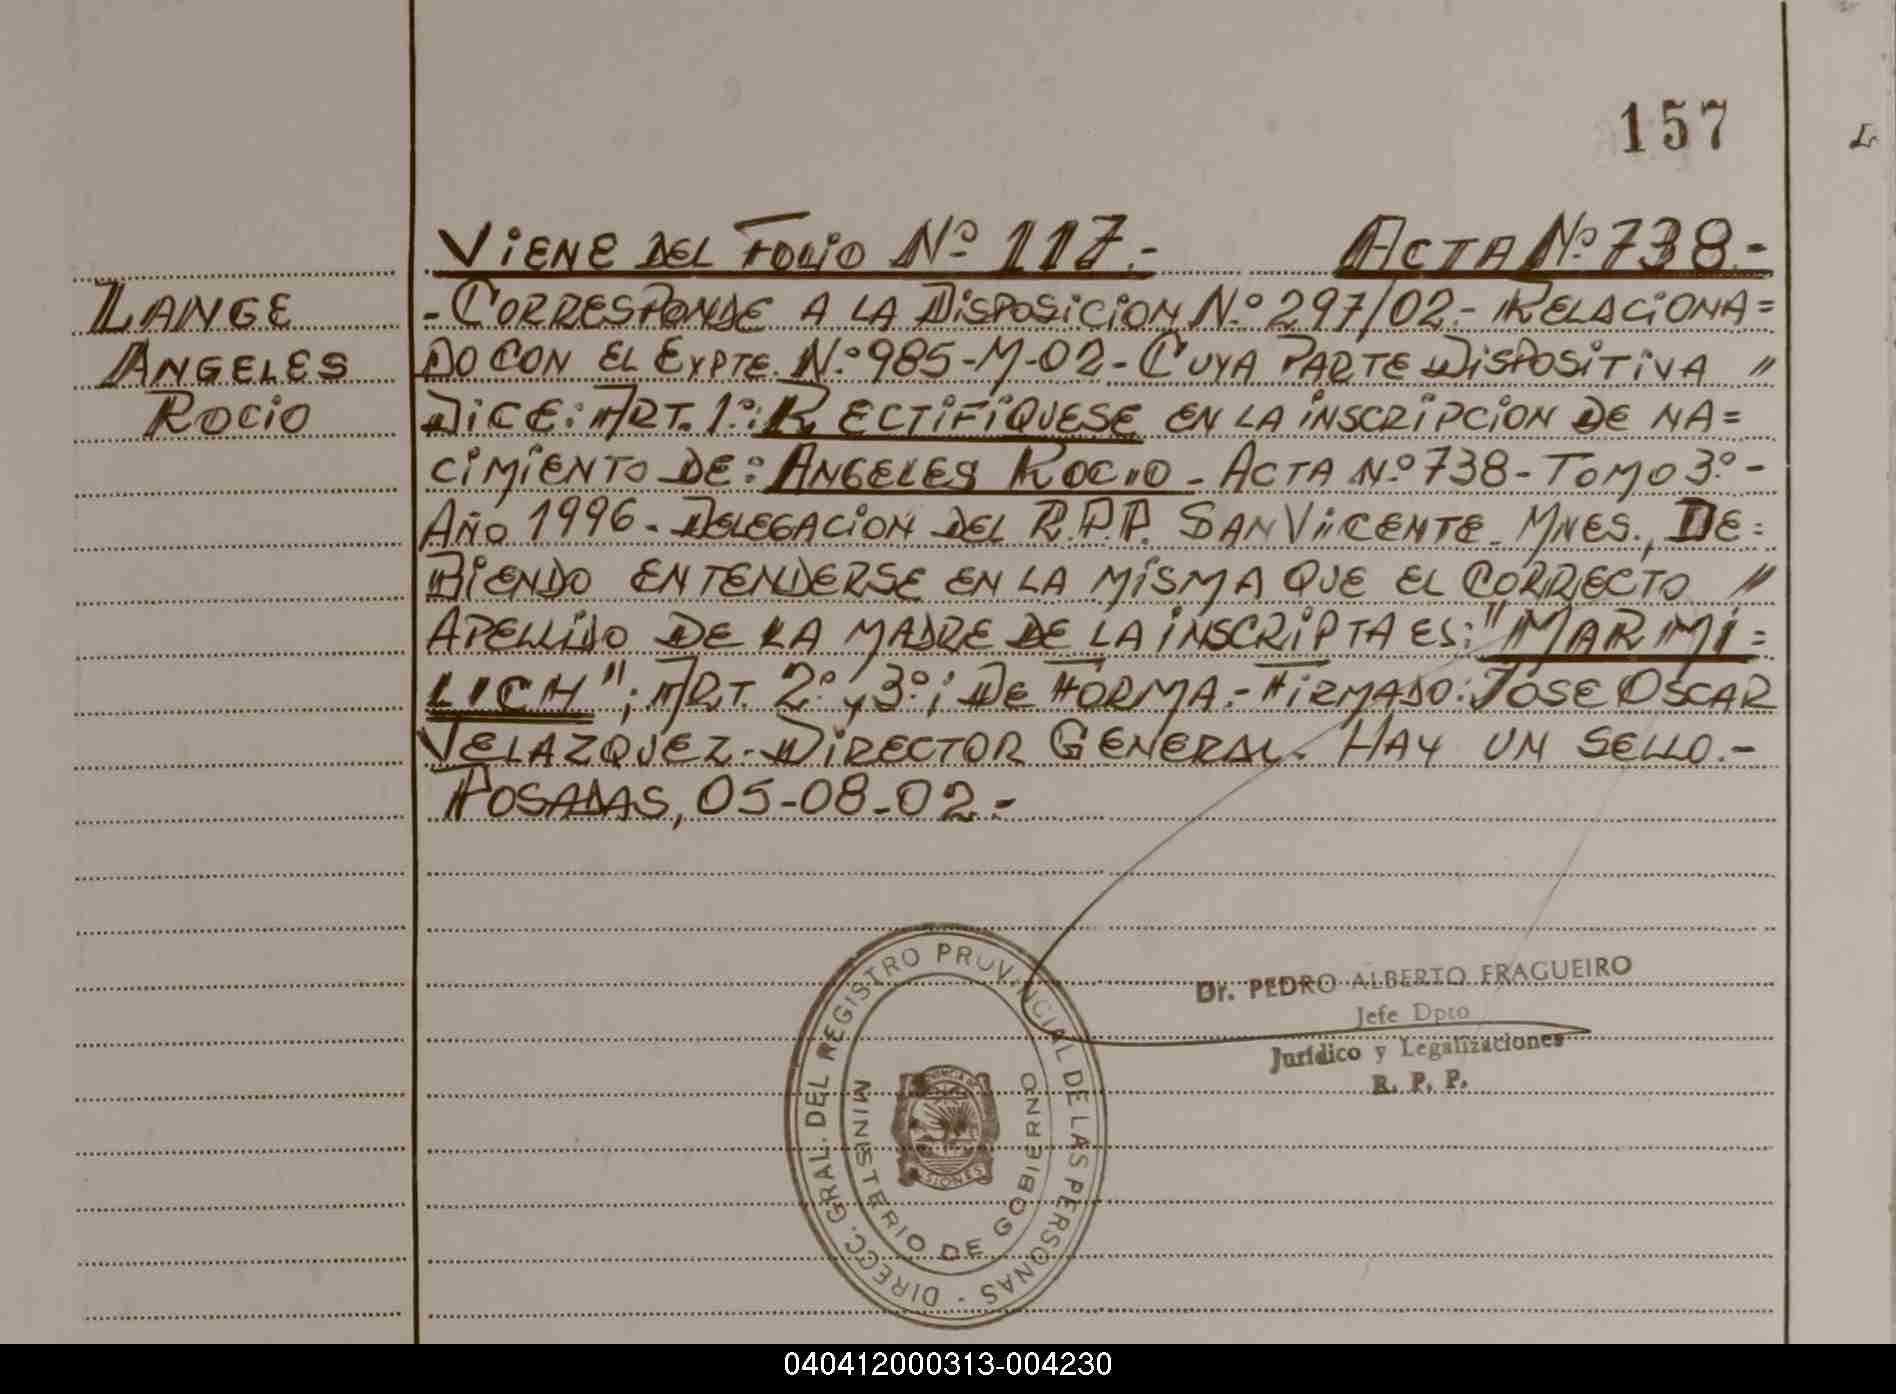 157
VIENE DEL FOLIO Nº 117.- ACTA Nº 738.-
LANGE
ANGELES
ROCIO
- CORRESPONDE A LA DISPOSICION Nº 297/02.- RELACIONA=
DO CON EL EXPTE. Nº 985-M-02- CUYA PARTE DISPOSITIVA "
DICE: ART. 1º: RECTIFIQUESE EN LA INSCRIPCION DE NA=
CIMIENTO DE: ANGELES ROCIO - ACTA Nº 738 - TOMO 3º -
AÑO 1996. DELEGACION DEL R.P.P. SAN VIICENTE. MNES., DE:
BIENDO ENTENDERSE EN LA MISMA QUE EL CORRECTO "
APELLIDO DE LA MADRE DE LA INSCRIPTA ES: "MARMI=
LICH"; ART. 2º y 3º; DE FORMA.- FIRMADO: JOSE OSCAR
VELAZQUEZ.- DIRECTOR GENERAL. HAY UN SELLO.-
POSADAS, 05-08-02.-
DIRECC. GRAL. DEL REGISTRO PROVINCIAL DE LAS PERSONAS -
MINISTERIO DE GOBIERNO
PROVINCIA DE
MISIONES
Dr. PEDRO ALBERTO FRAGUEIRO
Jefe Dpto
Jurídico y Legalizaciones
R. P. P.
040412000313-004230